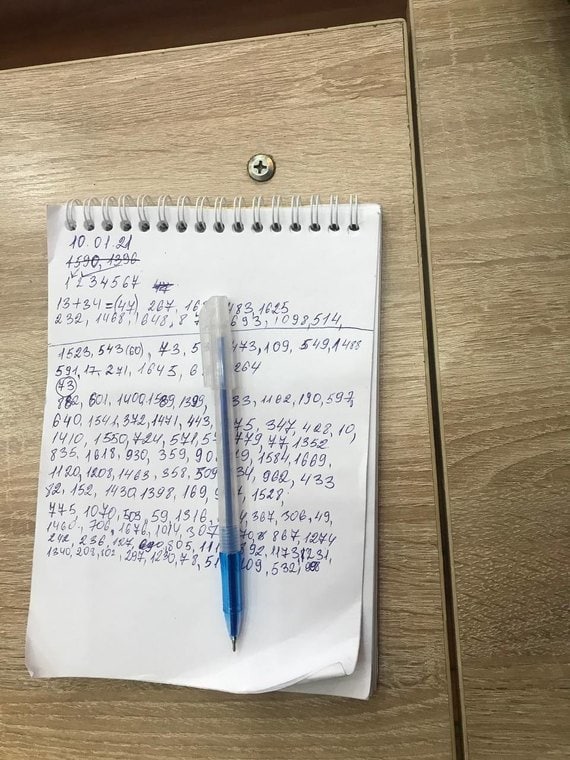 10.01.21
1590, 1396
1234567
13+34=(47), 267, 483, 1625
232, 1468, 1648, 693, 1098, 514,
1523, 543(60), 73, 473, 109, 549, 1488
591, 17, 271, 1645, 264
(73)
601, 1400, 1399, 33, 1162, 190, 597,
640, 1541, 372, 1471, 443, 75, 347, 428, 10,
1410, 1550, 724, 571, 779, 77, 1352
835, 1618, 930, 359, 1584, 1669,
1120, 1208, 1463, 358, 509, 34, 962, 433
82, 152, 1430, 1398, 169, 1528,
775, 1070, 503, 59, 1316, 367, 306, 49,
1460, 706, 1676, 1014, 307, 70, 867, 1274
242, 236, 127, 805, 892, 1173, 1231,
1340, 203, 102, 297, 1230, 78, 109, 532,